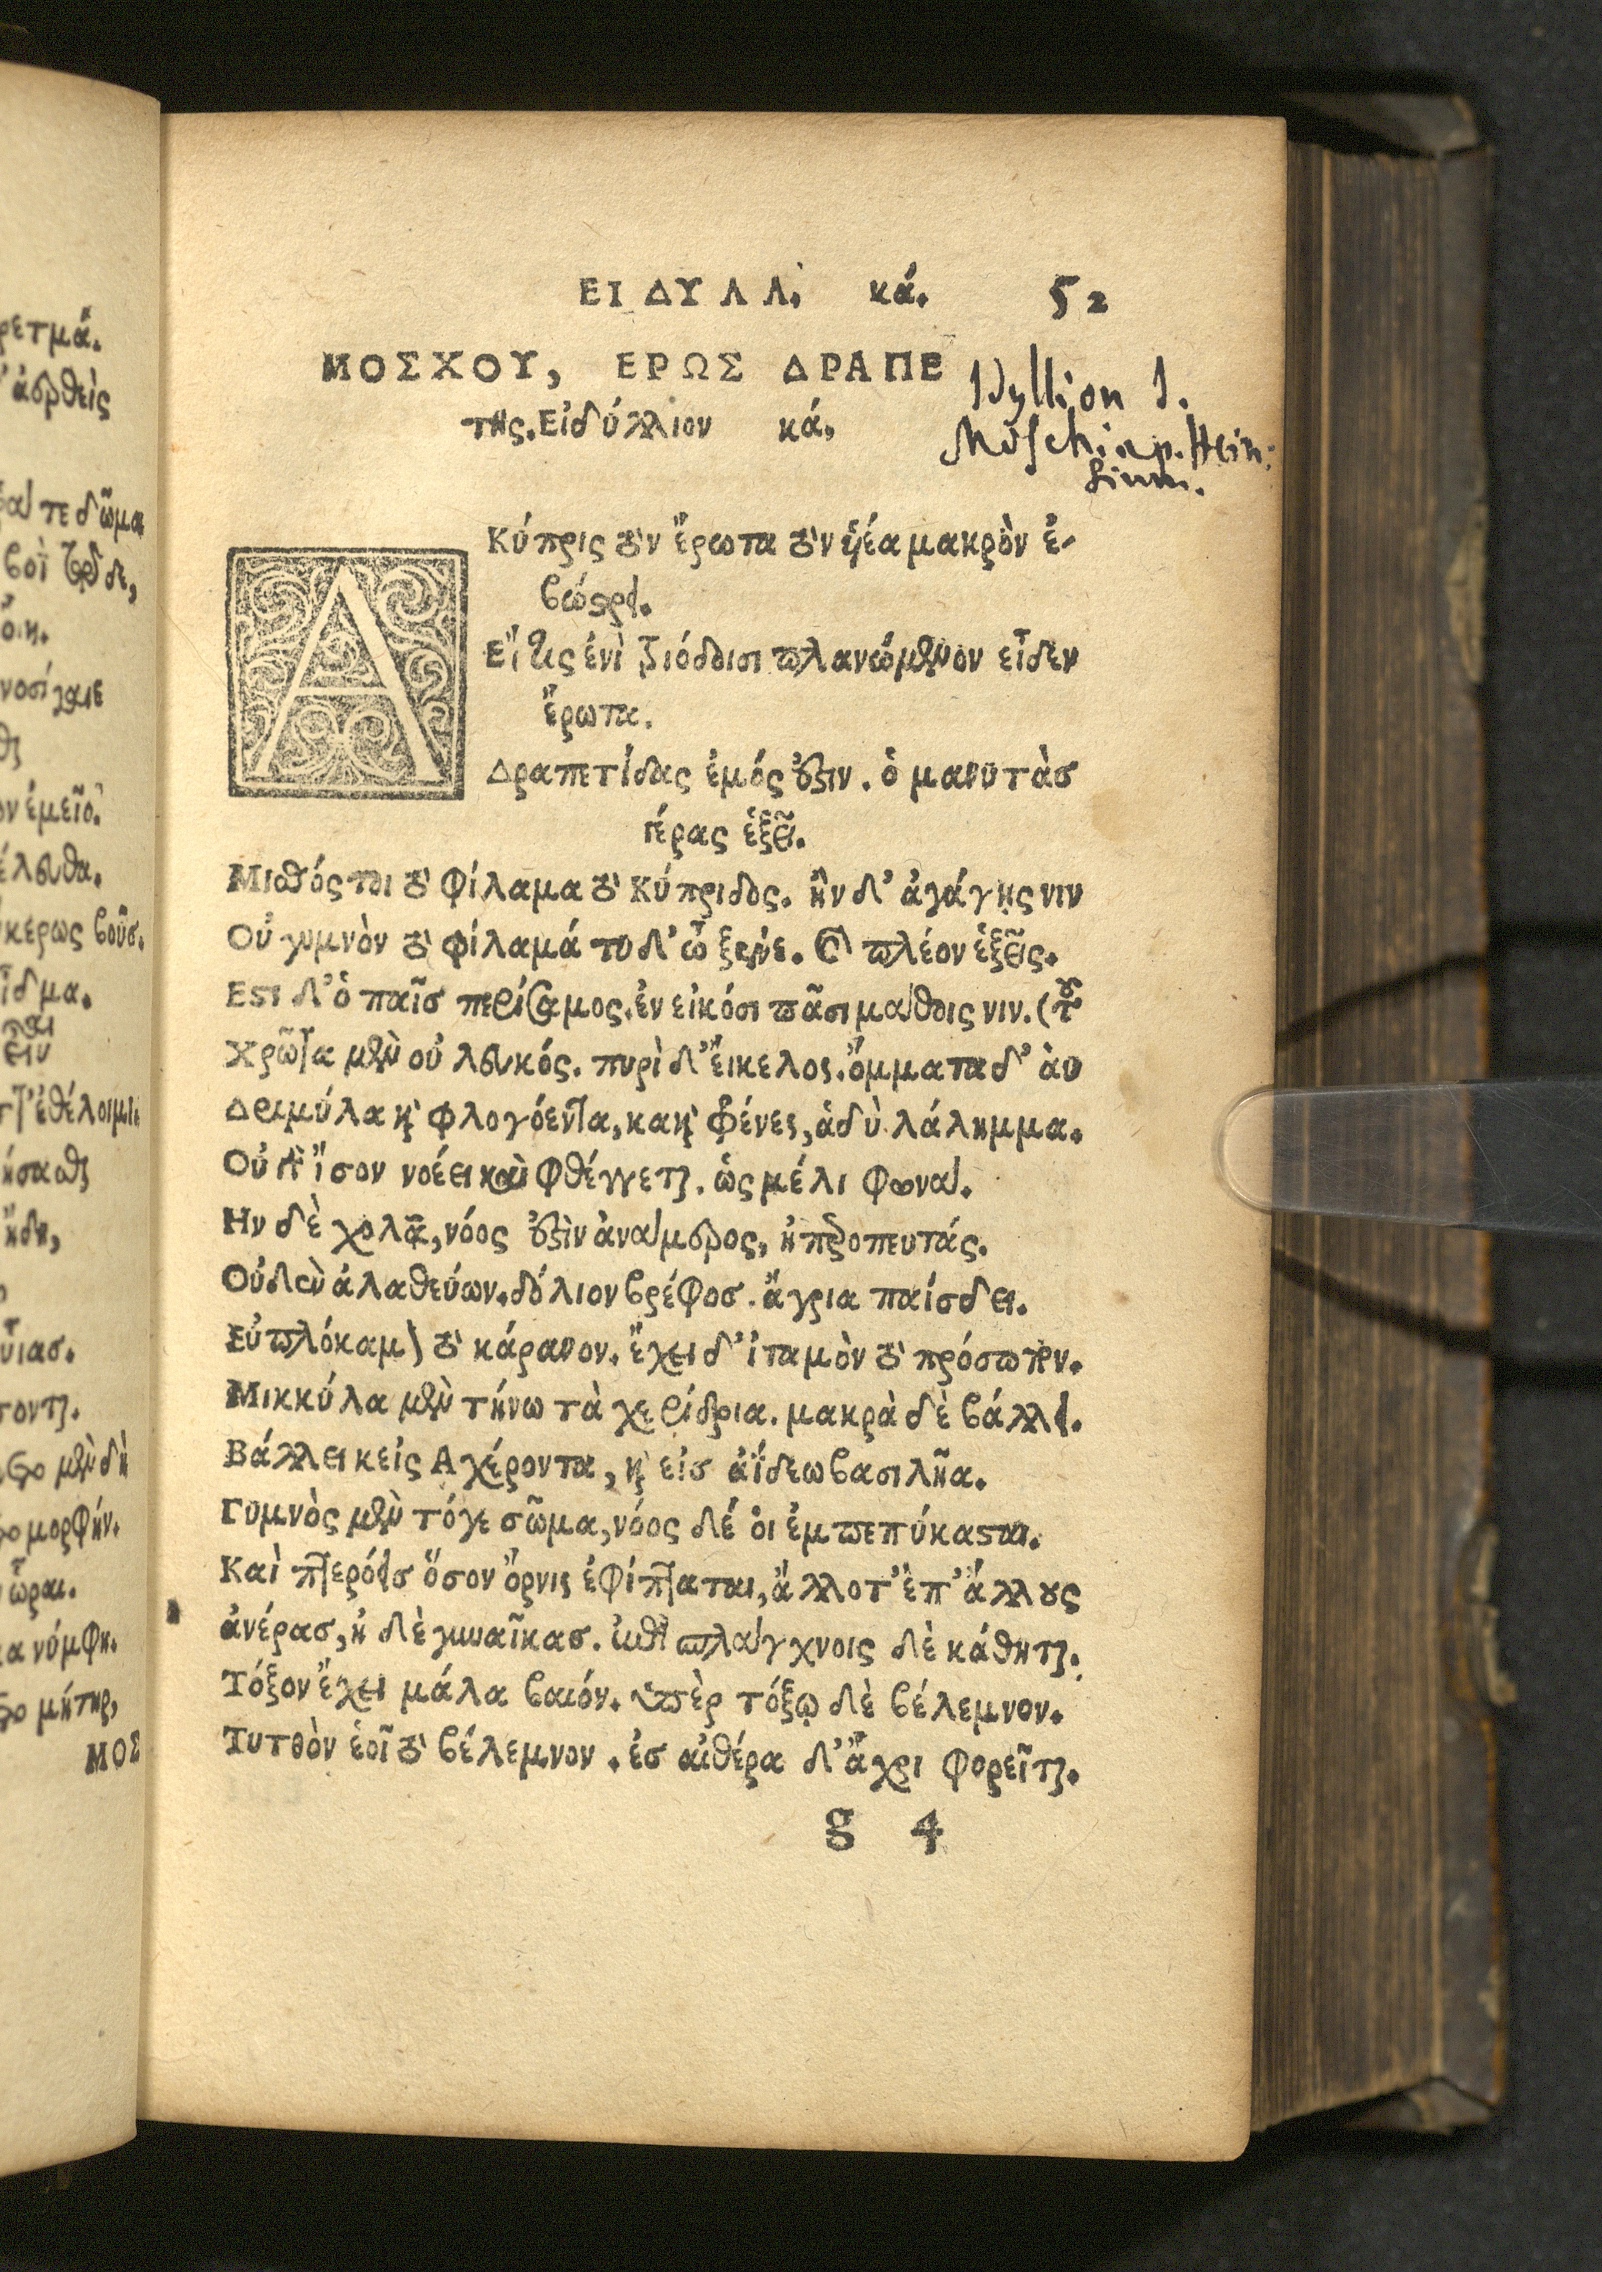 ΕΙΔΥΛΛ. κά. 52
ΜΟΣΧΟΥ, ΕΡΩΣ ΔΡΑΠΕ
της. Εἰδύλλιον κά,
Idyllion 1.
Moschi ap. Hein:
sium.
Α Κύπρις τὸν ἔρωτα τὸν ὑέα μακρὸν ἐ-
βώστρει.
Εἴ τις ἐνὶ τριόδοισι πλανώμενον εἶδεν
ἔρωτα.
Δραπετίδας ἐμός ἐστιν. ὁ μανυτὰσ
γέρας ἑξεῖ.
Μισθός τοι τὸ φίλαμα τὸ Κύπριδος. ἢν δ' ἀγάγῃς νιν
Οὐ γυμνὸν τὸ φίλαμά τυ δ' ὦ ξένε. καὶ πλέον ἑξεῖς.
Εστι δ' ὁ παῖσ περίσαμος. ἐν εἰκόσι πᾶσι μάθοις νιν. (του
Χρῶτα μὲν οὐ λευκός. πυρὶ δ' εἴκελος. ὄμματα δ' ἀυ
Δριμύλα καὶ φλογόεντα, κακαὶ φρένες, ἁδὺ λάλημμα.
Οὐ γὰρ ἴσον νοέει καὶ φθέγγεται. ὡς μέλι φωνά.
Ην δὲ χολᾷ, νόος ἐστὶν ἀνάμερος, ἠπεροπευτάς.
Οὐδὲν ἀλαθεύων. δόλιον βρέφοσ. ἄγρια παίσδει.
Εὐπλόκαμον τὸ κάρανον. ἔχει δ' ἰταμὸν τὸ πρόσωπον.
Μικκύλα μὲν τήνω τὰ χερίδρια. μακρὰ δὲ βάλλει.
Βάλλει κεἰς Αχέροντα, καὶ εἰσ ἀΐδεω βασιλῆα.
Γυμνὸς μὲν τόγε σῶμα, νόος δέ ὁι ἐμπεπύκασται.
Καὶ πτερόεισ ὅσον ὄρνις ἐφίπταται, ἄλλοτ' ἐπ' ἄλλους
ἀνέρασ, ἠ δὲ γυναῖκασ. ἐπὶ σπλάγχνοις δὲ κάθηται.
Τόξον ἔχει μάλα βαιόν. ὑπὲρ τόξῳ δὲ βέλεμνον.
Τυτθὸν ἑοῖ τὸ βέλεμνον. ἐσ αἰθέρα δ' ἄχρι φορεῖται.
g 4